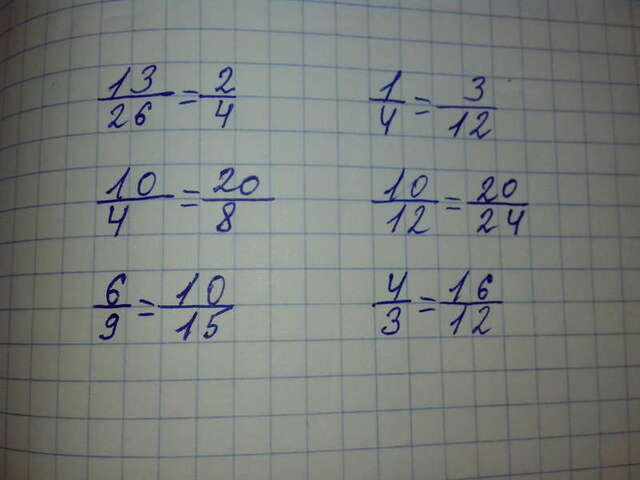 13/26 = 2/4    1/4 = 3/12
10/4 = 20/8    10/12 = 20/24
6/9 = 10/15    4/3 = 16/12